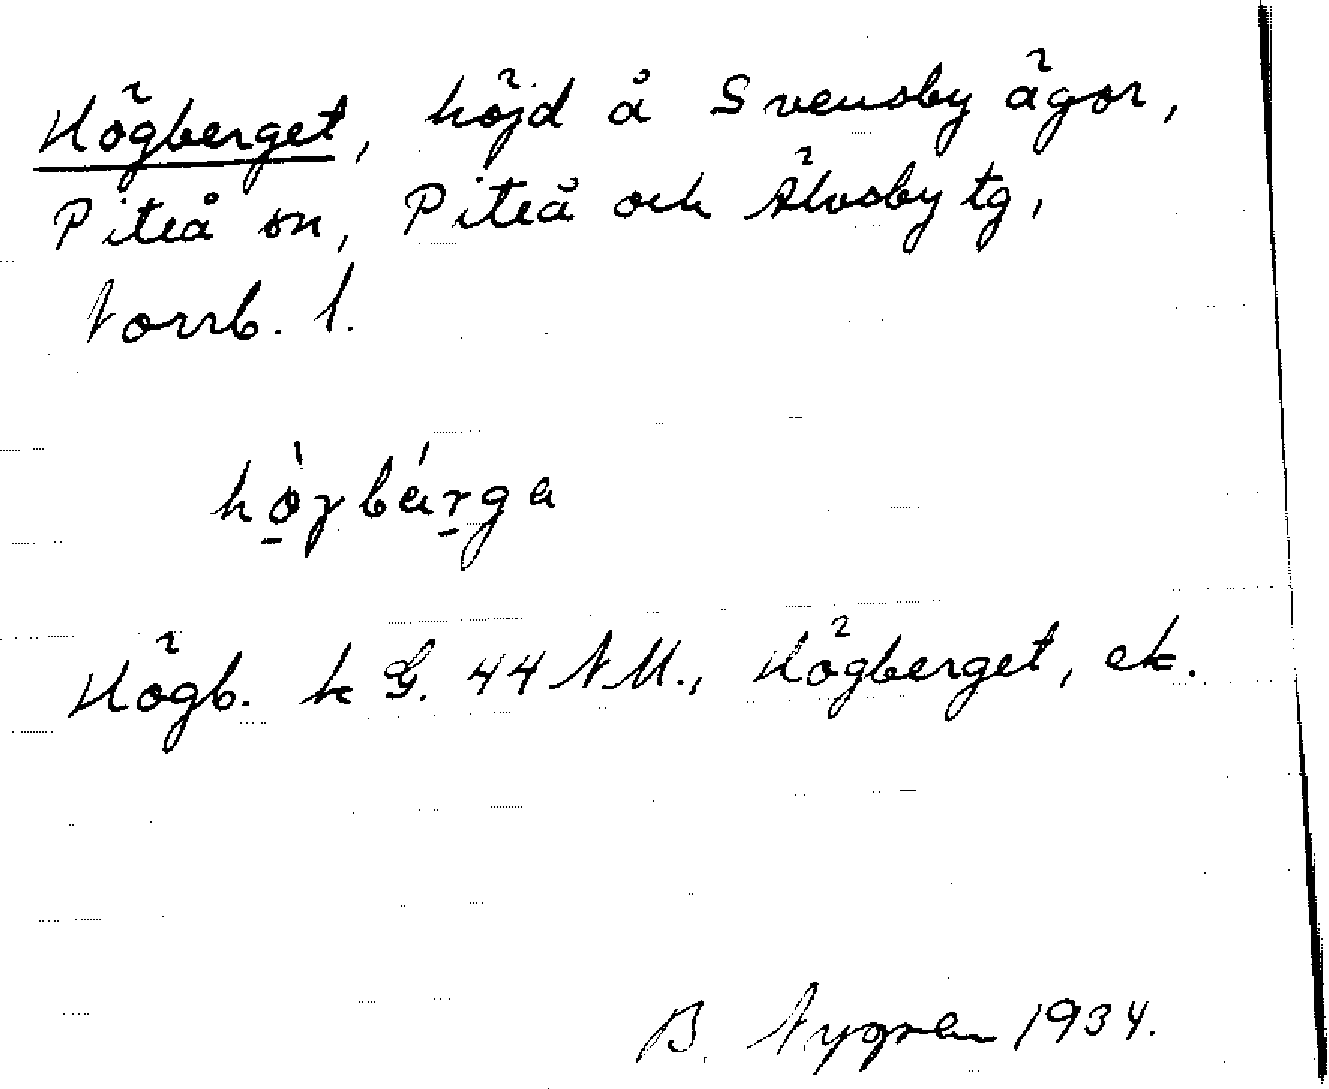 Högberget, höjd å Svensby ägor,
Piteå sn, Piteå och Älvsby tg,
Norrb. l.
hö̀γbárga
Högb. k G. 44 NM., Högberget, ek.
B. Nygren 1934.